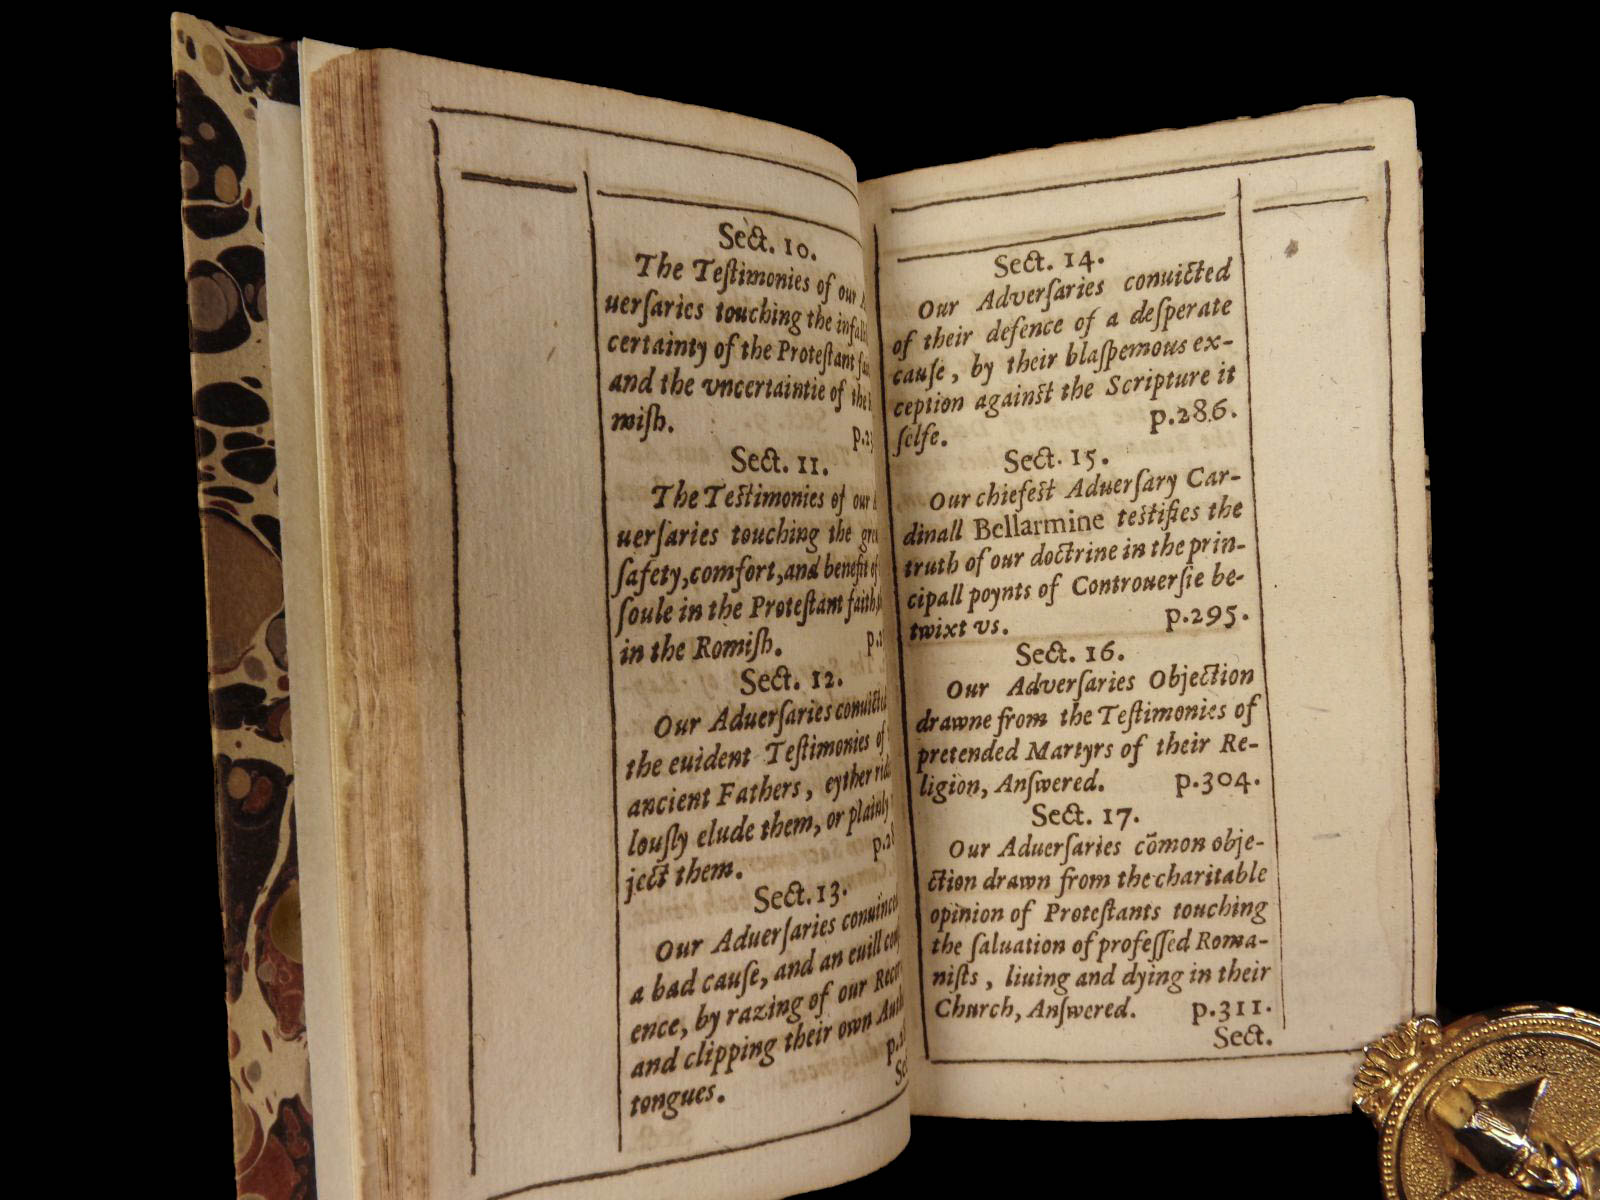 Sect. 10.
The Teſtimonies of our
uerſaries touching the
certainty of the Proteſtant
and the vncertaintie of the
miſh.
Sect. 11.
The Teſtimonies of our
uerſaries touching the
ſafety, comfort, and benefit of
ſoule in the Proteſtant faith,
in the Romiſh.
Sect. 12.
Our Aduerſaries
the euident Teſtimonies of
ancient Fathers, eyther
louſly elude them, or plainly
ject them.
Sect. 13.
Our Aduerſaries
a bad cauſe, and an euill
ence, by razing of our
and clipping their own
tongues.
Sect. 14.
Our Adverſaries conuicted
of their defence of a deſperate
cauſe, by their blaſpemous ex-
ception against the Scripture it
ſelfe. p.286.
Sect. 15.
Our chiefest Aduerſary Car-
dinall Bellarmine testifies the
truth of our doctrine in the prin-
cipall poynts of Controuerſie be-
twixt vs. p.295.
Sect. 16.
Our Adverſaries Objection
drawne from the Teſtimonies of
pretended Martyrs of their Re-
ligion, Anſwered. p.304.
Sect. 17.
Our Aduerſaries cõmon obje-
ction drawn from the charitable
opinion of Proteſtants touching
the ſaluation of profeſſed Roma-
niſts, liuing and dying in their
Church, Anſwered. p.311.
Sect.